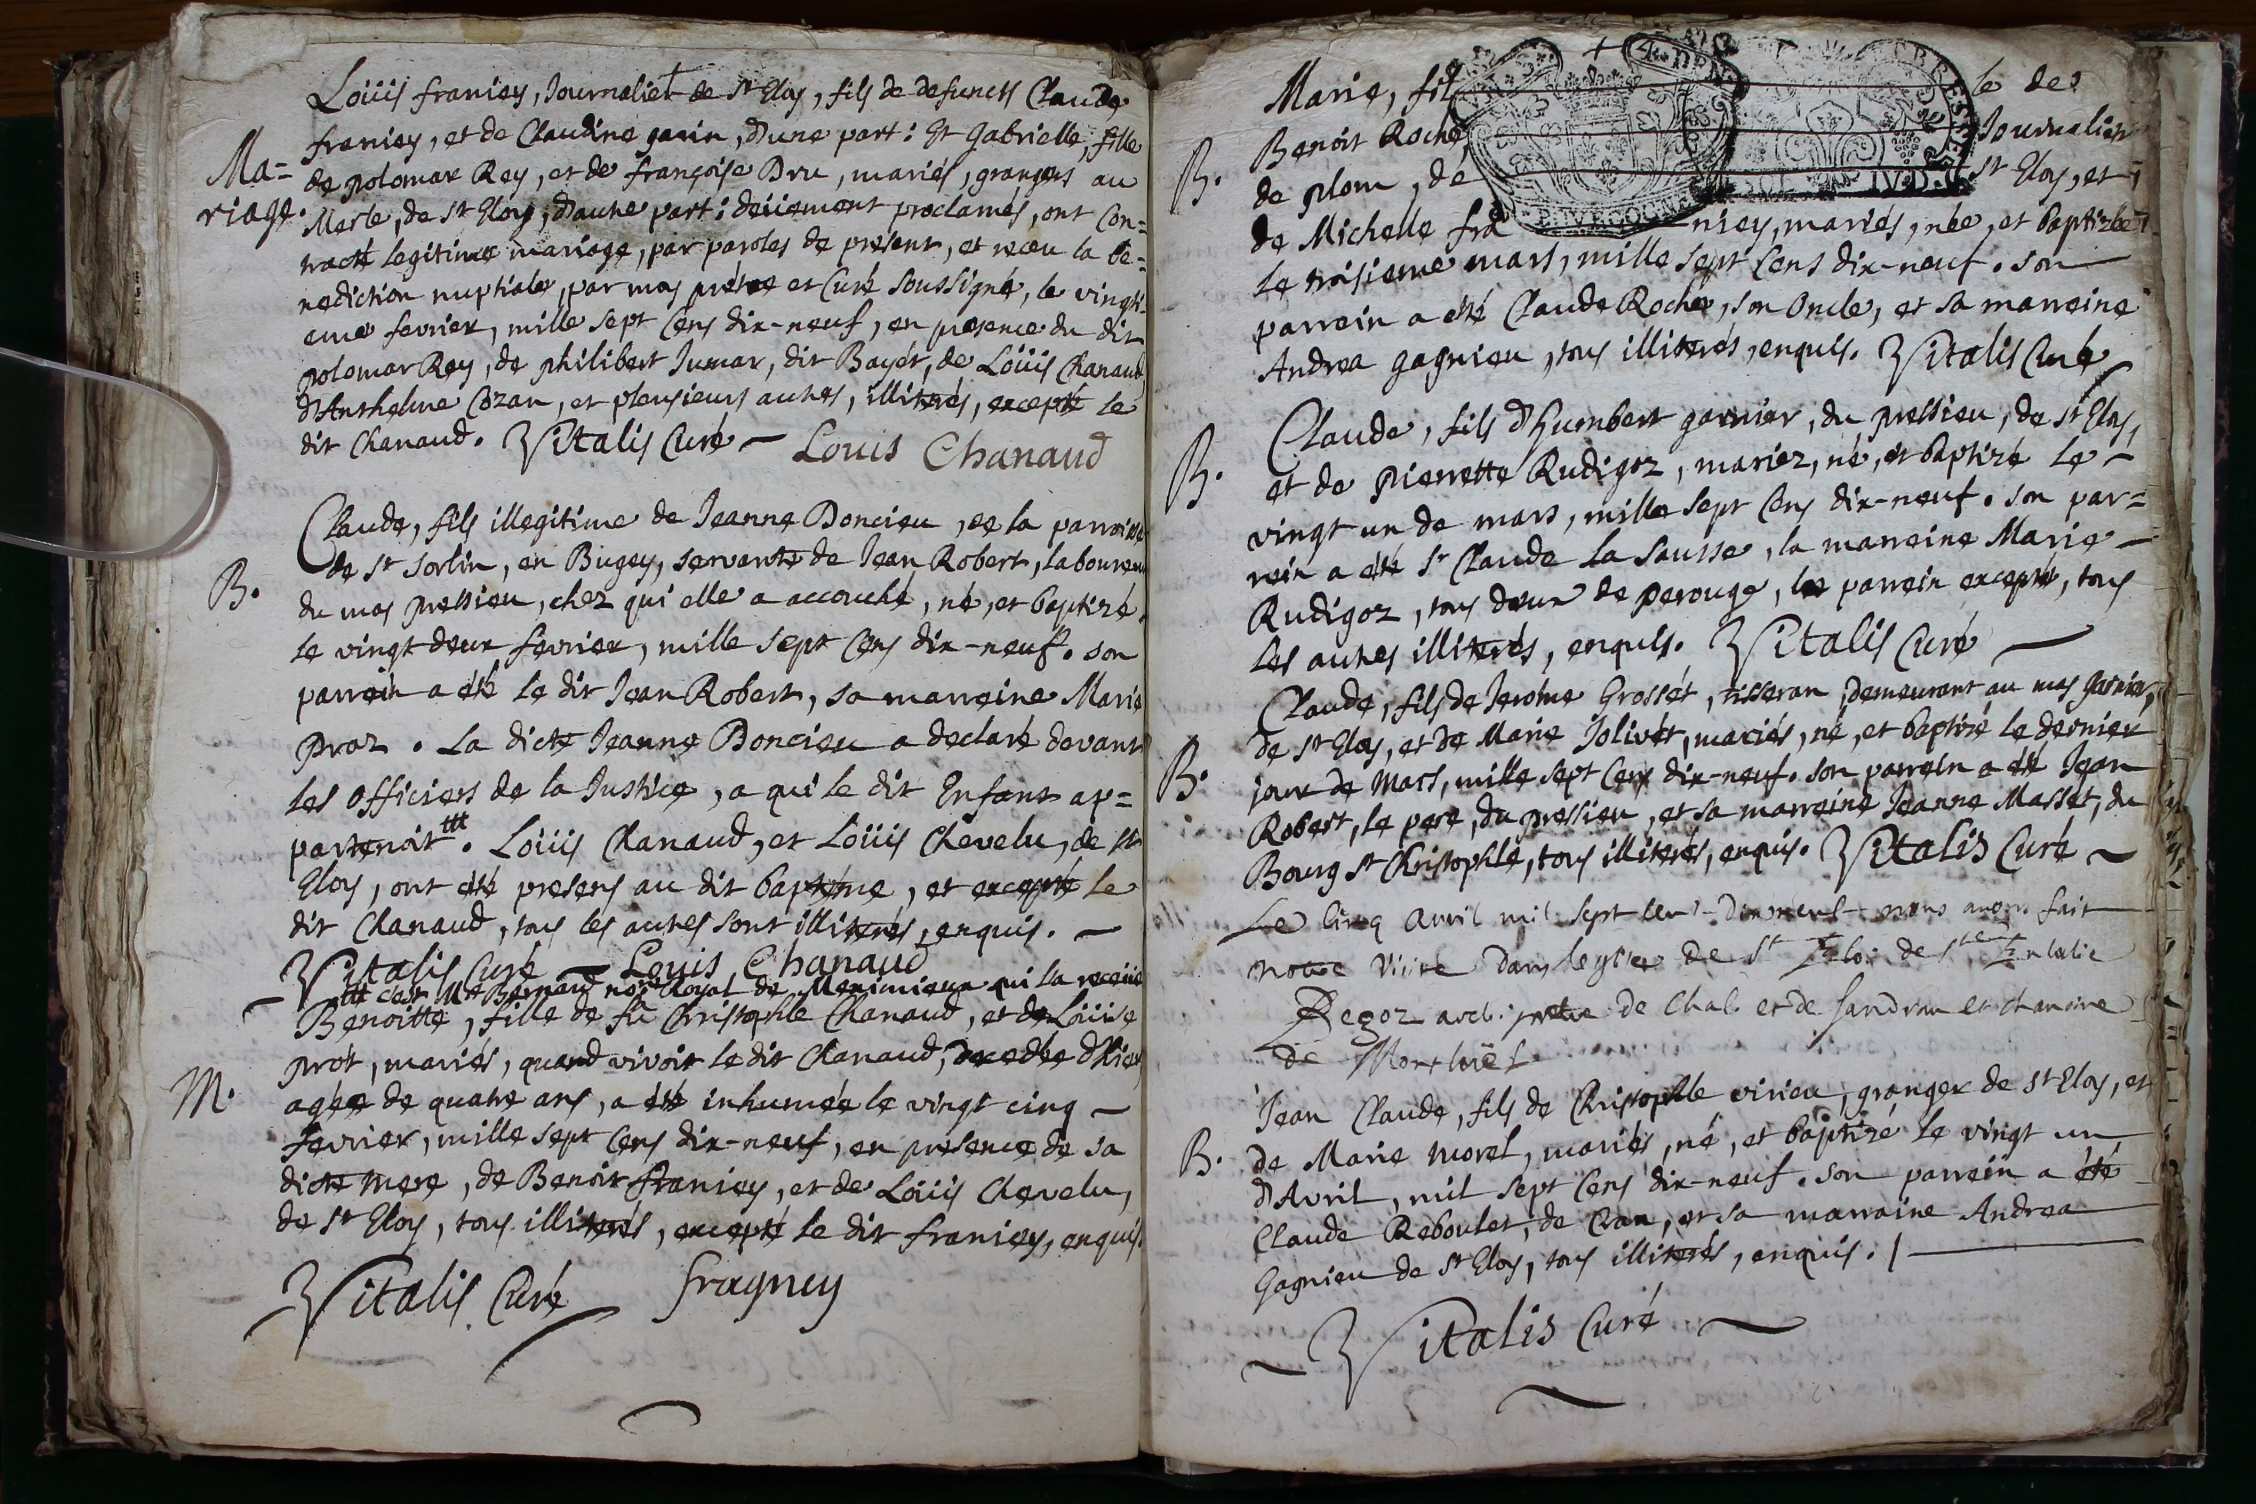 Loüis franiey, Journalier de St Eloy, fils de defuncts Claude
franiey, et de Claudine garin, d'une part : Et Gabrielle, fille
Ma= de polomar Rey, et de françoise Dru, mariés, grangers au
riage. Merle, de St Eloy, d'autre part : deüement proclamés, ont Con=
tracté legitime mariage, par paroles de present, et receu la be=
nediction nuptiale, par moy prétre et Curé soussigné, le vingti=
eme fevrier, mille sept Cens dix-neuf, en presence du dit
polomar Rey, de philibert Jumar, dit Bayét, de Loüis Chanaud,
d'Anthelme Cozan, et plensieurs autres, illiterés, excepté le
dit Chanaud. Vitalis Curé Louis Chanaud
Claude, fils illegitime de Jeanne Doncieu, de la parroisse
de St Sorlin, en Bugey, servante de Jean Robert, laboureur
B. du mas pressieu, chez qui elle a accouché, né, et baptizé
le vingt deux fevrier, mille sept Cens dix-neuf. son
parrein a été le dit Jean Robert, sa marreine Marie
proz. La dicte Jeanne Doncieu a declaré devant
les officiers de la Justice, a qui le dit Enfant ap=
partenoit ttt. Loüis Chanaud, et Loüis Chevelu, de St
Eloy, ont été presens au dit baptéme, et excepté le
dit Chanaud, tous les autres sont illiterés, enquis.
Vitalis Curé Louis Chanaud
ttt c'est Mre Bernard nore Royal de Meximieux qui l'a receüe
Benoitte, fille de fû Christophle Chanaud, et de Loüise
prót, mariés, quand vivoit le dit Chanaud, decedée d'hier,
M. agée de quatre ans, a été inhumée le vingt cinq
fevrier, mille sept Cens dix-neuf, en presence de sa
dicte mere, de Benoit franiey, et de Loüis Chevelu,
de St Eloy, tous illiterés, excepté le dit franiey, enquis.
Vitalis Curé fragney
Marie, fil le de
B. Benoit Roche, Journalier
de plom, de St Eloy, et
de Michelle fra niey, mariés, née, et baptizée
le troisieme mars, mille sept Cens dix-neuf. son
parrein a été Claude Roche, son Oncle, et sa marreine
Andrea gagnieu, tous illiterés, enquis. Vitalis Curé
Claude, fils d'Humbert garnier, du pressieu, de St Eloy,
B. et de pierrette Rudigoz, mariez, né, et baptizé le
vingt un de mars, mille sept Cens dix-neuf. son par=
rein a été Sr Claude la Sausse, la marreine Marie
Rudigoz, tous deux de perouge, le parrein excepté, tous
les autres illiterés, enquis. Vitalis Curé
Claude, fils de Jerôme Grossét, tisseran, demeurant au mas garnier,
de St Eloy, et de Marie Jolivét, mariés, né, et baptizé le dernier
B. jour de Mars, mille sept Cens dix-neuf. son parrein a été Jean
Robert, le pere, du pressieu, et sa marreine Jeanne Massét, du
Bourg St Christophle, tous illiterés, enquis. Vitalis Curé
Le cinq avril mil sept cent dixneuf nous avons fait
notre visite dans leglise de St Eloi de Ste Eulalie
Regoz archipretre de Chal. et de Sandran et chanoine
de Montluël
Jean Claude, fils de Christophle virieu, granger de St Eloy, et
B. de Marie morel, mariés, né, et baptizé le vingt un
d'Avril, mil sept Cens dix-neuf. son parrein a été
Claude Reboulet, de Cran, et sa marraine Andrea
Gagnieu de St Eloy, tous illiterés, enquis.
Vitalis Curé